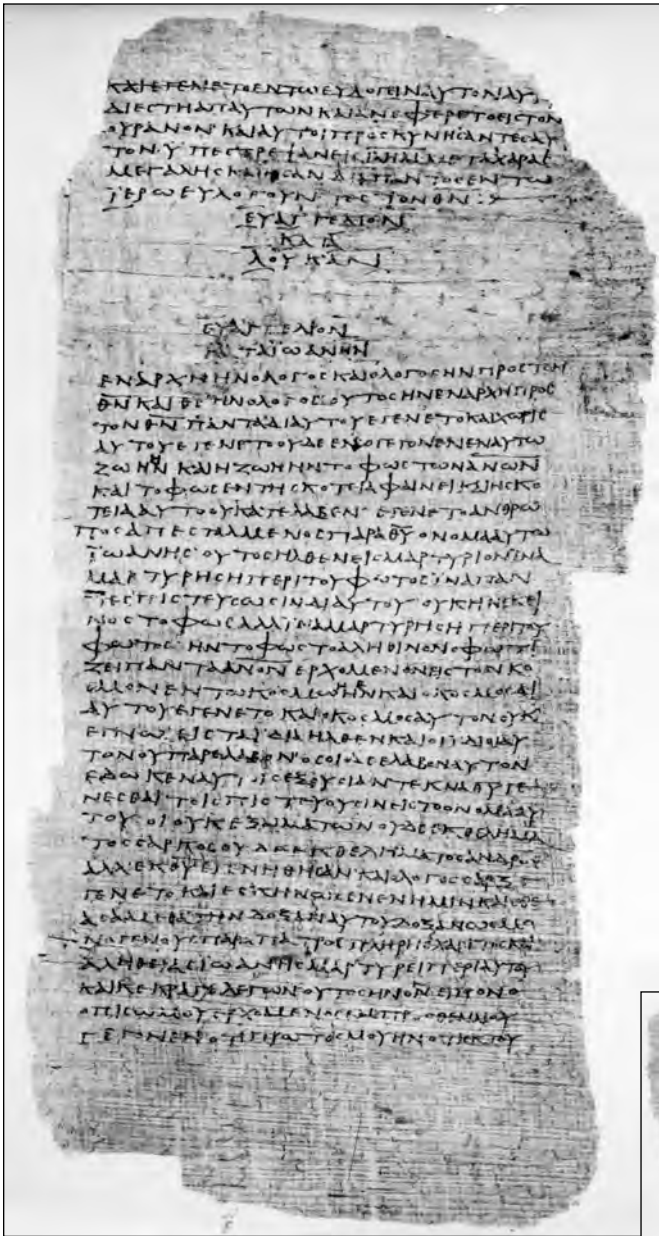 ΚΑΙΕΓΕΝΕΤΟΕΝΤΩΕΥΛΟΓΕΙΝΑΥΤΟΝΑΥ
ΔΙΕϹΤΗΑΠΑΥΤΩΝΚΑΙΑΝΕΦΕΡΕΤΟΕΙϹΤΟΝ
ΟΥΡΑΝΟΝΚΑΙΑΥΤΟΙΠΡΟϹΚΥΝΗϹΑΝΤΕϹΑΥ
ΤΟΝΥΠΕϹΤΡΕΨΑΝΕΙϹΙΛΗΜΜΕΤΑΧΑΡΑϹ
ΜΕΓΑΛΗϹΚΑΙΗϹΑΝΔΙΑΠΑΝΤΟϹΕΝΤΩ
ΙΕΡΩΕΥΛΟΓΟΥΝΤΕϹΤΟΝΘ̅Ν̅
ΕΥΑΓΓΕΛΙΟΝ
ΚΑΤΑ
ΛΟΥΚΑΝ
ΕΥΑΓΓΕΛΙΟΝ
ΚΑΤΑΙΩΑΝΗΝ
ΕΝΑΡΧΗΗΝΟΛΟΓΟϹΚΑΙΟΛΟΓΟϹΗΝΠΡΟϹΤΟΝ
Θ̅Ν̅ΚΑΙΘ̅Ϲ̅ΗΝΟΛΟΓΟϹΟΥΤΟϹΗΝΕΝΑΡΧΗΠΡΟϹ
ΤΟΝΘ̅Ν̅ΠΑΝΤΑΔΙΑΥΤΟΥΕΓΕΝΕΤΟΚΑΙΧΩΡΙϹ
ΑΥΤΟΥΕΓΕΝΕΤΟΟΥΔΕΕΝΟΓΕΓΟΝΕΝΕΝΑΥΤΩ
ΖΩΗΗΝΚΑΙΗΖΩΗΗΝΤΟΦΩϹΤΩΝΑ̅Ν̅Ω̅Ν̅
ΚΑΙΤΟΦΩϹΕΝΤΗϹΚΟΤΕΙΑΦΑΙΝΕΙΚΑΙΗϹΚΟ
ΤΕΙΑΑΥΤΟΟΥΚΑΤΕΛΑΒΕΝ·ΕΓΕΝΕΤΟΑΝΘΡΩ
ΠΟϹΑΠΕϹΤΑΛΜΕΝΟϹΠΑΡΑΘ̅Υ̅ΟΝΟΜΑΑΥΤΩ
ΙΩΑΝΗϹ·ΟΥΤΟϹΗΛΘΕΝΕΙϹΜΑΡΤΥΡΙΟΝΙΝΑ
ΜΑΡΤΥΡΗϹΗΠΕΡΙΤΟΥΦΩΤΟϹΙΝΑΠΑΝ
ΤΕϹΠΙϹΤΕΥϹΩϹΙΝΔΙΑΥΤΟΥΟΥΚΗΝΕΚΕΙ
ΝΟϹΤΟΦΩϹΑΛΛΙΝΑΜΑΡΤΥΡΗϹΗΠΕΡΙΤΟΥ
ΦΩΤΟϹ·ΗΝΤΟΦΩϹΤΟΑΛΗΘΙΝΟΝΟΦΩΤΙ
ΖΕΙΠΑΝΤΑΑ̅Ν̅Ο̅Ν̅ΕΡΧΟΜΕΝΟΝΕΙϹΤΟΝΚΟ
ϹΜΟΝΕΝΤΩΚΟϹΜΩΗΝΚΑΙΟΚΟϹΜΟϹΔΙ
ΑΥΤΟΥΕΓΕΝΕΤΟΚΑΙΟΚΟϹΜΟϹΑΥΤΟΝΟΥΚ
ΕΓΝΩΕΙϹΤΑΙΔΙΑΗΛΘΕΝΚΑΙΟΙΙΔΙΟΙΑΥ
ΤΟΝΟΥΠΑΡΕΛΑΒΟΝ·ΟϹΟΙΔΕΕΛΑΒΟΝΑΥΤΟΝ
ΕΔΩΚΕΝΑΥΤΟΙϹΕΞΟΥϹΙΑΝΤΕΚΝΑΘ̅Υ̅ΓΕ
ΝΕϹΘΑΙΤΟΙϹΠΙϹΤΕΥΟΥϹΙΝΕΙϹΤΟΟΝΟΜΑΑΥ
ΤΟΥΟΙΟΥΚΕΞΑΙΜΑΤΩΝΟΥΔΕΕΚΘΕΛΗΜΑ
ΤΟϹϹΑΡΚΟϹΟΥΔΕΕΚΘΕΛΗΜΑΤΟϹΑΝΔΡΟϹ
ΑΛΛΕΚΘ̅Υ̅ΕΓΕΝΗΘΗϹΑΝΚΑΙΟΛΟΓΟϹϹΑΡΞΕ
ΓΕΝΕΤΟΚΑΙΕϹΚΗΝΩϹΕΝΕΝΗΜΙΝΚΑΙΕΘΕ
ΑϹΑΜΕΘΑΤΗΝΔΟΞΑΝΑΥΤΟΥΔΟΞΑΝΩϹΜΟ
ΝΟΓΕΝΟΥϹΠΑΡΑΠΑΤΡΟϹΠΛΗΡΗϹΧΑΡΙΤΟϹΚΑΙ
ΑΛΗΘΕΙΑϹΙΩΑΝΗϹΜΑΡΤΥΡΕΙΠΕΡΙΑΥΤΟΥ
ΚΑΙΚΕΚΡΑΓΕΛΕΓΩΝΟΥΤΟϹΗΝΟΝΕΙΠΟΝΟ
ΟΠΙϹΩΜΟΥΕΡΧΟΜΕΝΟϹΕΜΠΡΟϹΘΕΝΜΟΥ
ΓΕΓΟΝΕΝΟΤΙΠΡΩΤΟϹΜΟΥΗΝΟΤΙΕΚΤΟΥ